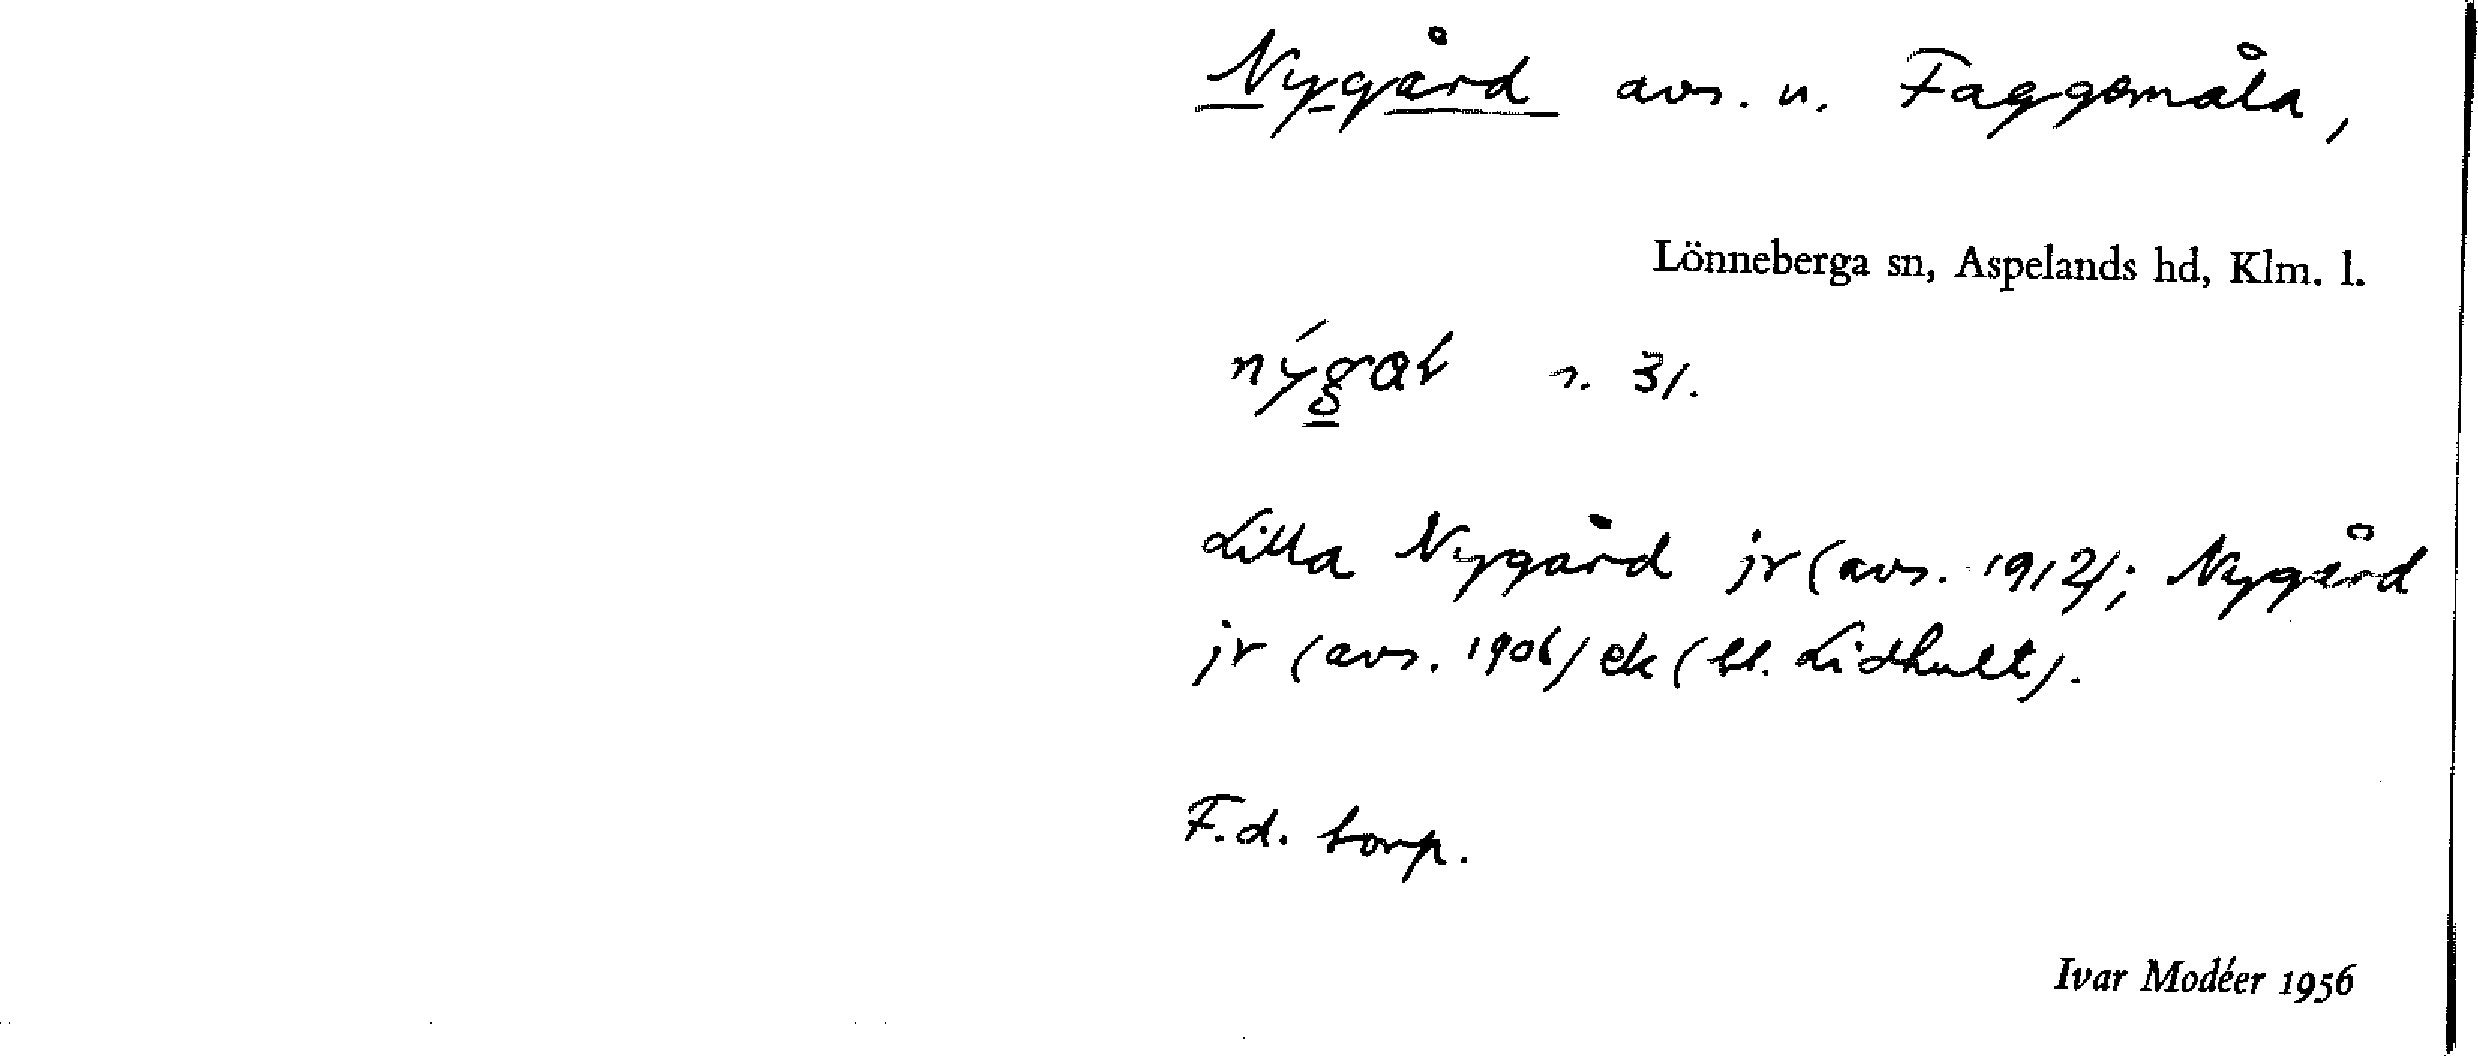 Nygård avs. u. Faggemåla,
Lönneberga sn, Aspelands hd, Klm. l.
nýgaɫ s. 31.
Lilla Nygård jr (avs. 1912); Nygård
jr (avs. 1906) ek (bl. Lidhult).
F.d. torp.
Ivar Modéer 1956